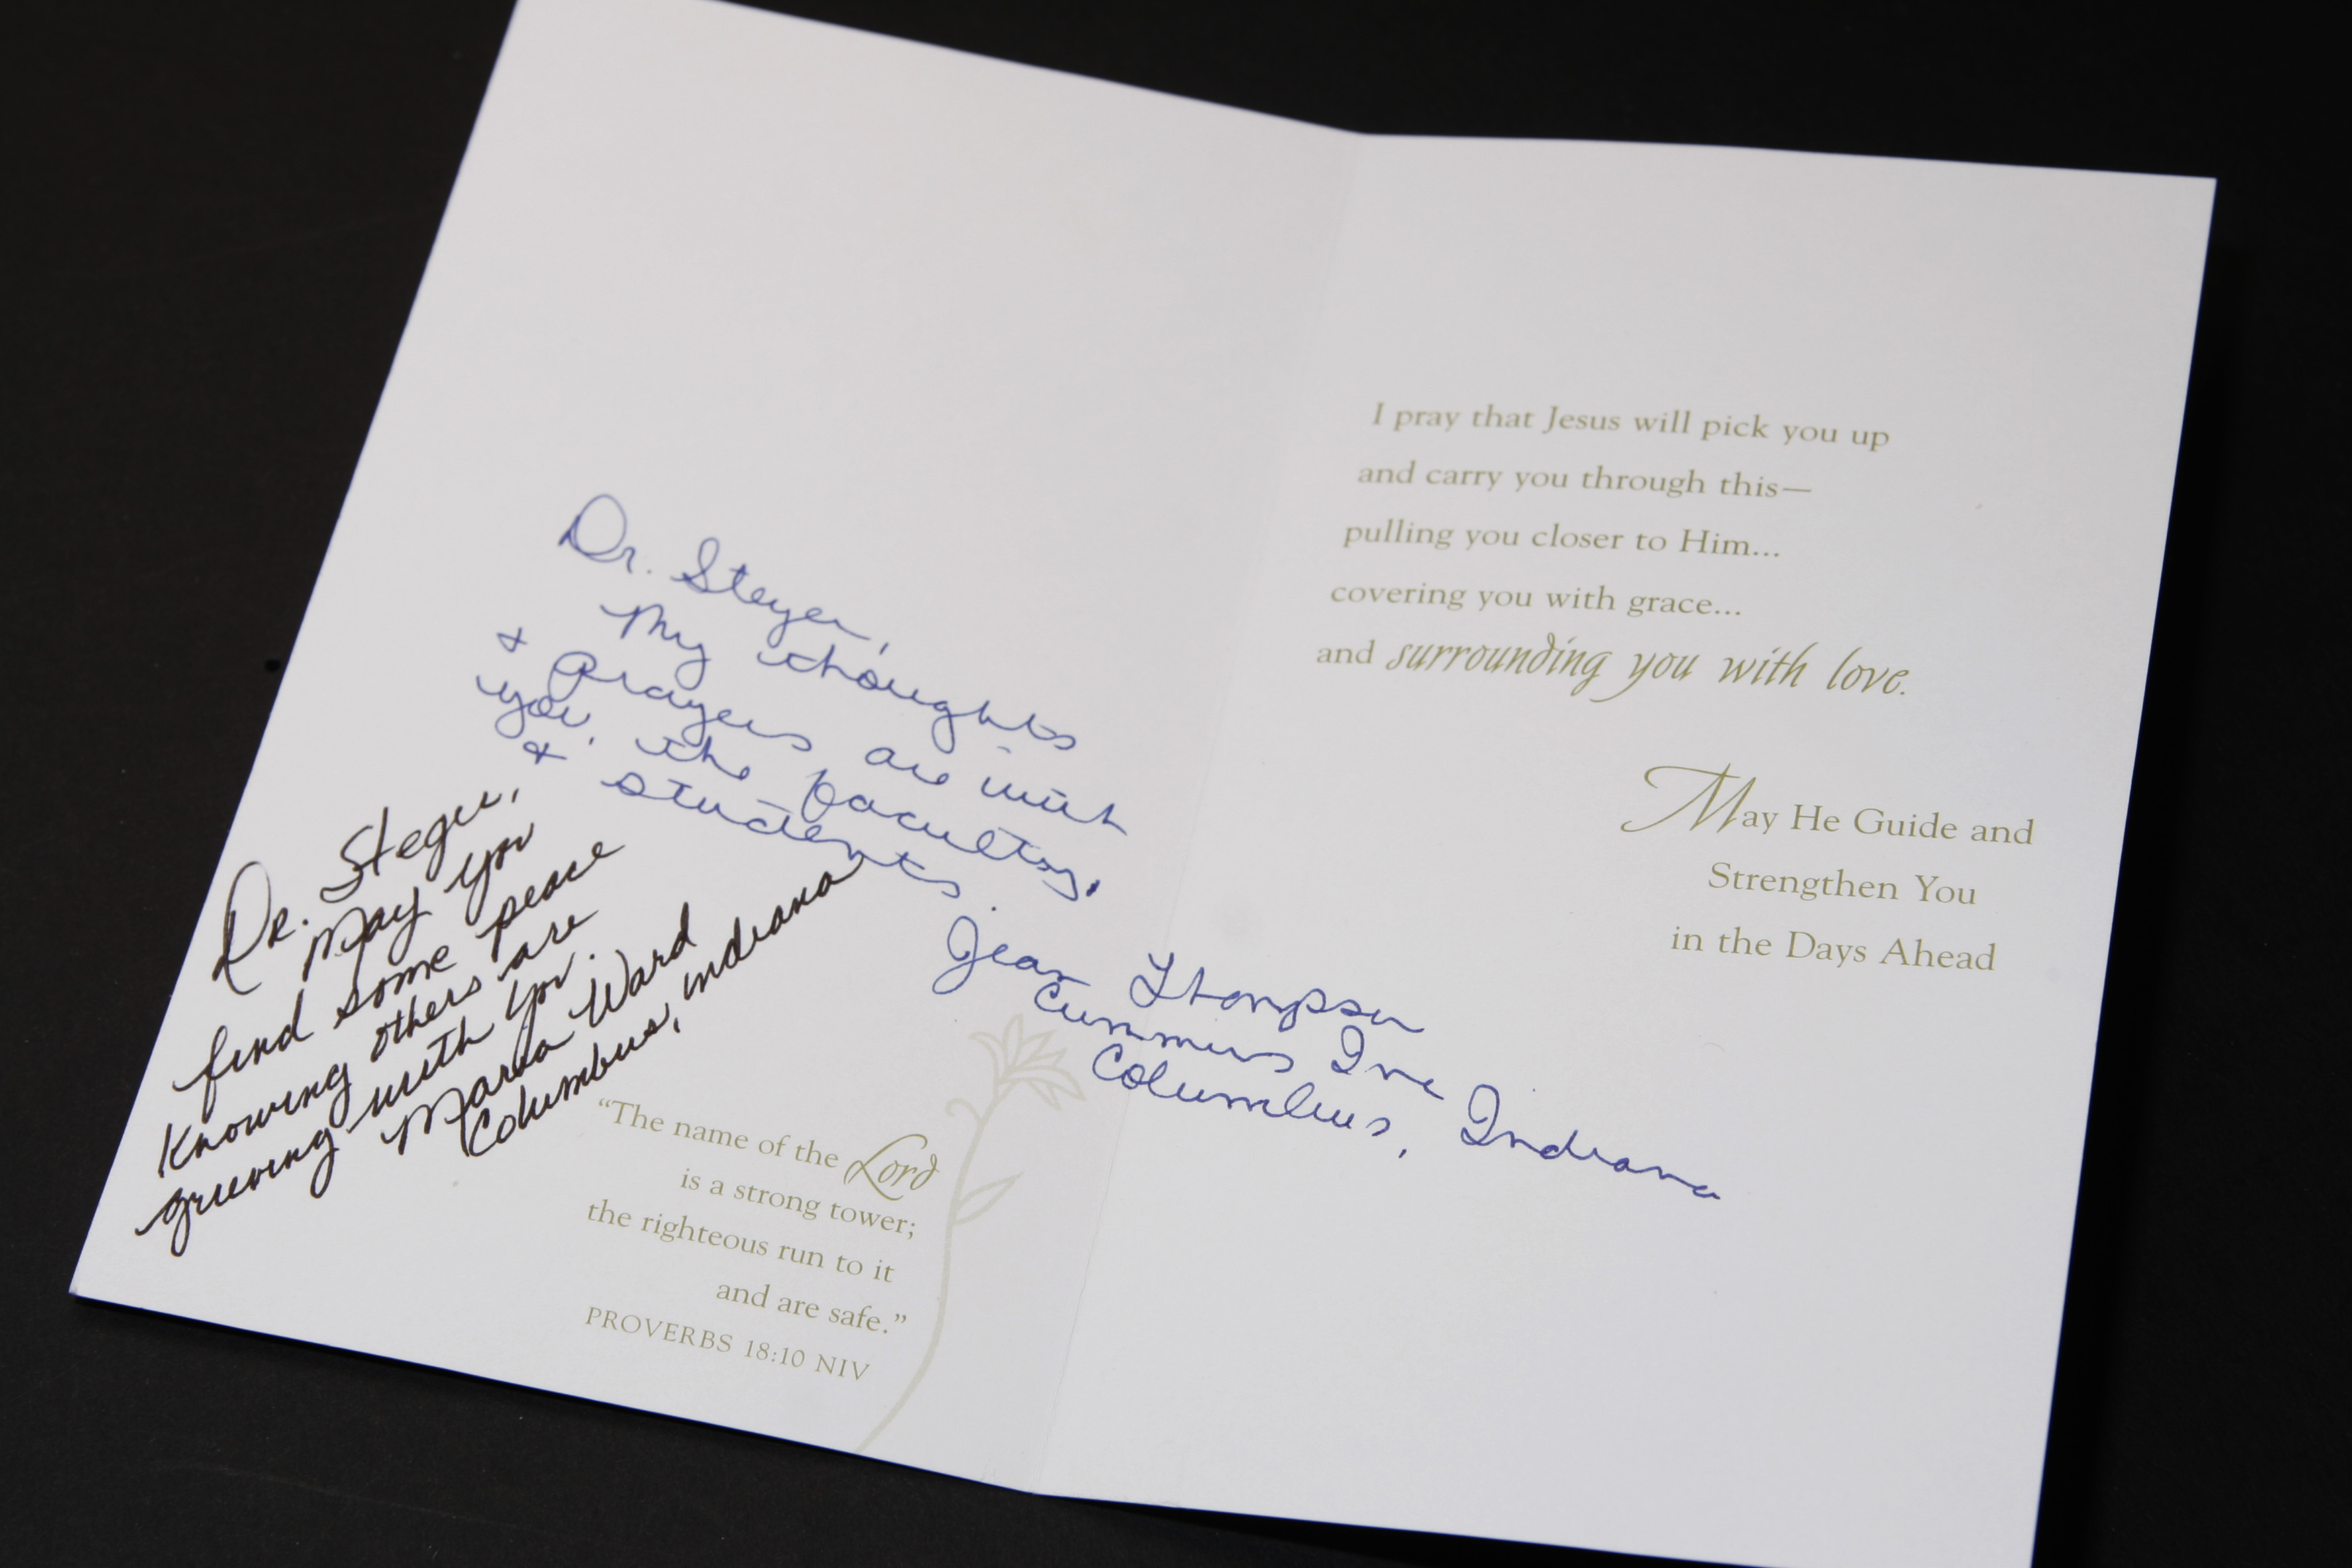 Dr. Steger,
My thoughts
& Prayers are with
you, the faculty,
& students.
Jean Thompson
Cummins Inc
Columbus, Indiana
Dr. Steger,
May you
find some peace
Knowing others are
grieving with you.
Maria Ward
Columbus, Indiana
“The name of the Lord
is a strong tower;
the righteous run to it
and are safe.”
PROVERBS 18:10 NIV
I pray that Jesus will pick you up
and carry you through this—
pulling you closer to Him...
covering you with grace...
and surrounding you with love.
May He Guide and
Strengthen You
in the Days Ahead